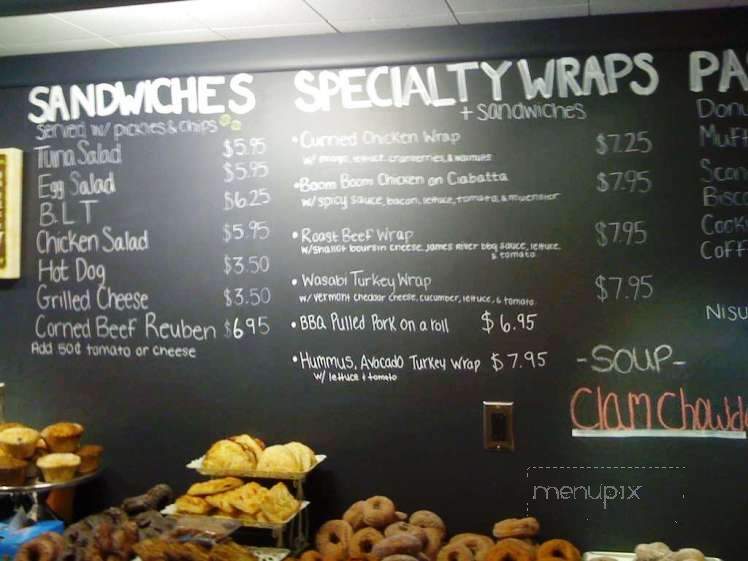 SANDWICHES
Served w/ pickles & chips
Tuna Salad $5.95
Egg Salad $5.95
B.L.T $6.25
Chicken Salad $5.95
Hot Dog $3.50
Grilled Cheese $3.50
Corned Beef Reuben $6.95
Add 50¢ tomato or cheese
SPECIALTY WRAPS
+ sandwiches
• Curried Chicken Wrap $7.25
w/ mango, lettuce, cranberries, & walnuts
• Boom Boom Chicken on Ciabatta $7.95
w/ spicy sauce, bacon, lettuce, tomato, & muenster
• Roast Beef Wrap $7.95
w/ shallot boursin cheese, James River bbq sauce, lettuce
& tomato
• Wasabi Turkey Wrap $7.95
w/ vermont cheddar cheese, cucumber, lettuce, & tomato
• BBQ Pulled Pork on a roll $6.95
• Hummus, Avocado Turkey Wrap $7.95
w/ lettuce + tomato
- SOUP -
Clam Chowd
PA
Donu
Muff
Scon
Bisc
Cook
Coff
NISU
menupix